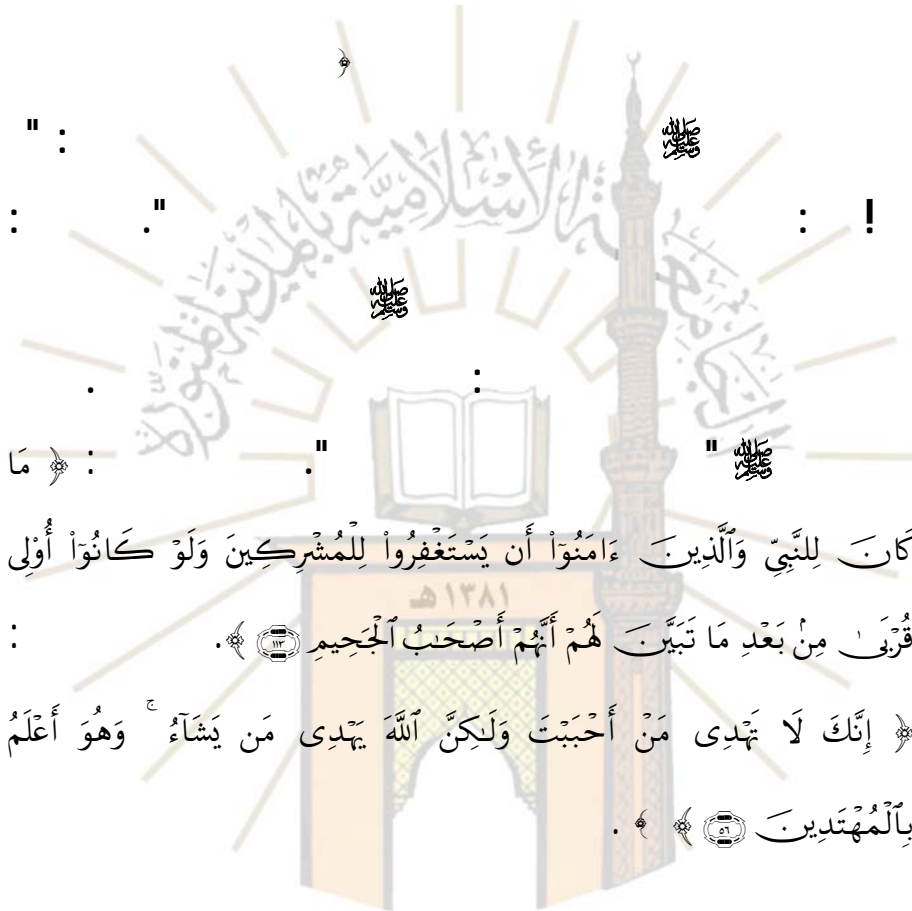 ﴿
ﷺ : "
! : ". :
ﷺ
: .
ﷺ " ". : ﴿ مَا
كَانَ لِلنَّبِيِّ وَٱلَّذِينَ ءَامَنُوٓا۟ أَن يَسْتَغْفِرُوا۟ لِلْمُشْرِكِينَ وَلَوْ كَانُوٓا۟ أُو۟لِى
١٣٨١ هـ
قُرْبَىٰ مِنۢ بَعْدِ مَا تَبَيَّنَ لَهُمْ أَنَّهُمْ أَصْحَٰبُ ٱلْجَحِيمِ ١١٣ ﴾. :
﴿ إِنَّكَ لَا تَهْدِى مَنْ أَحْبَبْتَ وَلَٰكِنَّ ٱللَّهَ يَهْدِى مَن يَشَآءُ ۚ وَهُوَ أَعْلَمُ
بِٱلْمُهْتَدِينَ ٥٦ ﴾ ﴾ .